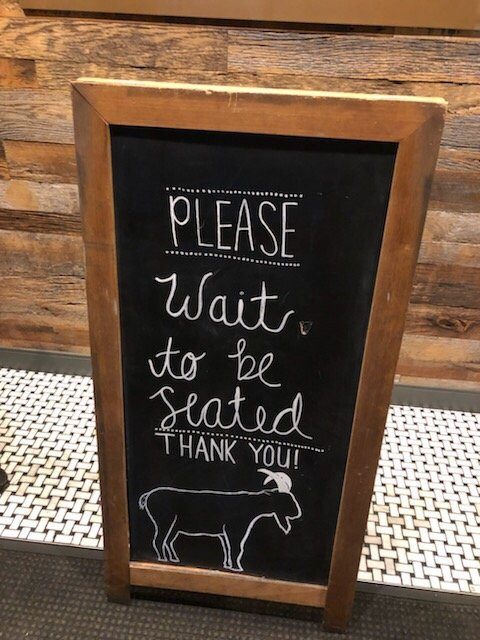 PLEASE
Wait
to be
seated
THANK YOU!